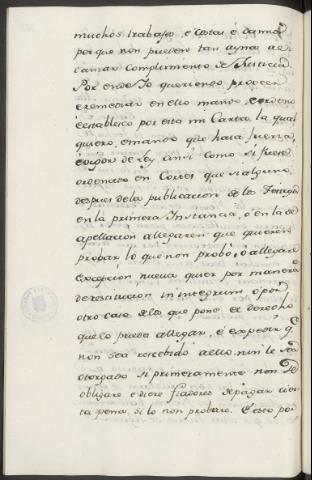 muchos trabajos, e costas, é daños
porque non pueden tan ayna al
canzar complimento de Justicia.
Por ende Io queriendo proveer
e remediar en ello mando, e ordeno
e establesco por esta mi Carta la qual
quiero, e mando que haia fuerza,
e vigor de Ley, ansi como si fuese
ordenado en Cortes que si alguno,
despues de la publicacion de los Testigos
en la primera Instancia, o en la de
apellacion allegaren que quieren
probar lo que non probó, ó allegare
excepcion nueva quier por manera
de restitucion in integrum, ó por
otro caso de los que pone el derecho
que lo pueda allegar, é expresar q.e
non sea rescebido a ello, nin le sea
otorgado si primeramente non se
obligare, e diere fiadores de pagar cier
ta pena, si lo non probare. E esto por